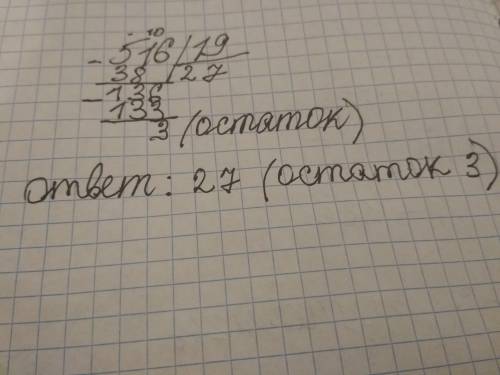 · 10
- 516 | 19
38 | 27
- 136
133
3 (остаток)
ответ: 27 (остаток 3)